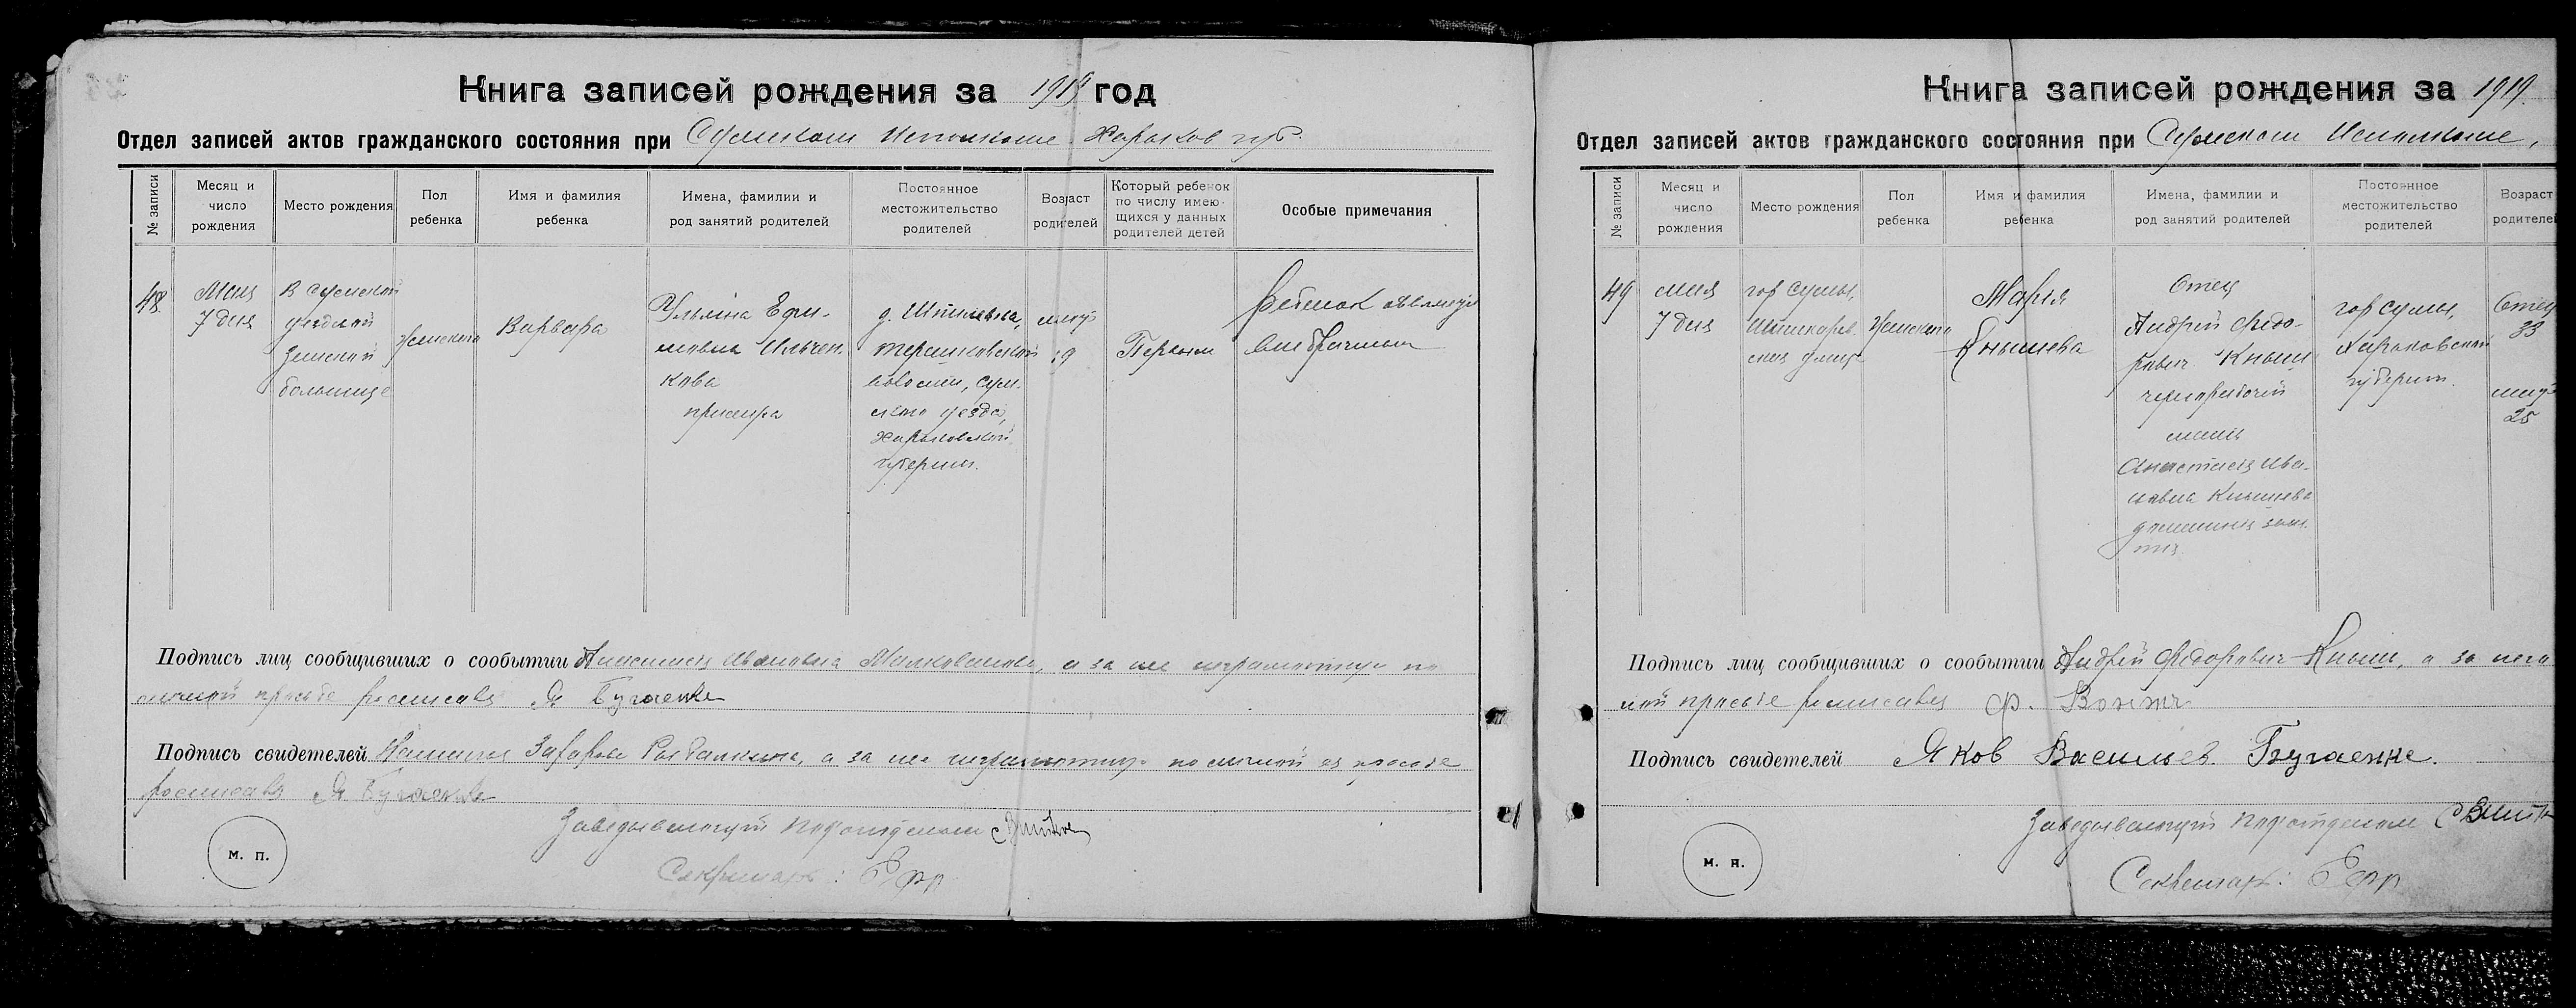 Книга записей рождения за 1919 год
Отдел записей актов гражданского состояния при Сумском Исполкоме Харьков губ.
№ записи
Месяц и
число
рождения
Место рождения
Пол
ребенка
Имя и фамилия
ребенка
Имена, фамилии и
род занятий родителей
Постоянное
местожительство
родителей
Возраст
родителей
Который ребенок
по числу имею-
щихся у данных
родителей детей
Особые примечания
48
Мая
7 дня
В Сумской
уездной
земской
больнице
Женского
Варвара
Ульяна Ефи-
мовна Ильчен-
кова
волости, Сум-
ского уезда,
Харьковской
губернии.
19
Первый
Ребенок
внебрачный
Подпись лиц сообщивших о сообытии Анастасия Ивановна а за не неграмотную по
личной просьбе росписался Я Бугаенко
Подпись свидетелей Захарова а за не неграмотную по личной ея просьбе
росписался Я Бугаенко
Заведывающий подотделом
Секретарь:
м. п.
Книга записей рождения за 1919
Отдел записей актов гражданского состояния при Сумском Исполкоме,
№ записи
Месяц и
число
рождения
Место рождения
Пол
ребенка
Имя и фамилия
ребенка
Имена, фамилии и
род занятий родителей
Постоянное
местожительство
родителей
Возраст
родителей
49
мая
7 дня
гор Сумы,
Женского
Мария
Кнышева
Отец
Андрей Федо-
рович Кныш
чернорабочий
мать
Анастасия Ива-
новна Кнышева
домашния заня-
тия
гор Сумы,
Харьковской
губернии.
Отец
33
мать
25
Подпись лиц сообщивших о сообытии Андрей Федорович Кныш, а за него
ной просьбе росписался Ф.
Подпись свидетелей Яков Васильев. Бугаенко.
Заведывающий подотделом
Секретарь:
м. п.